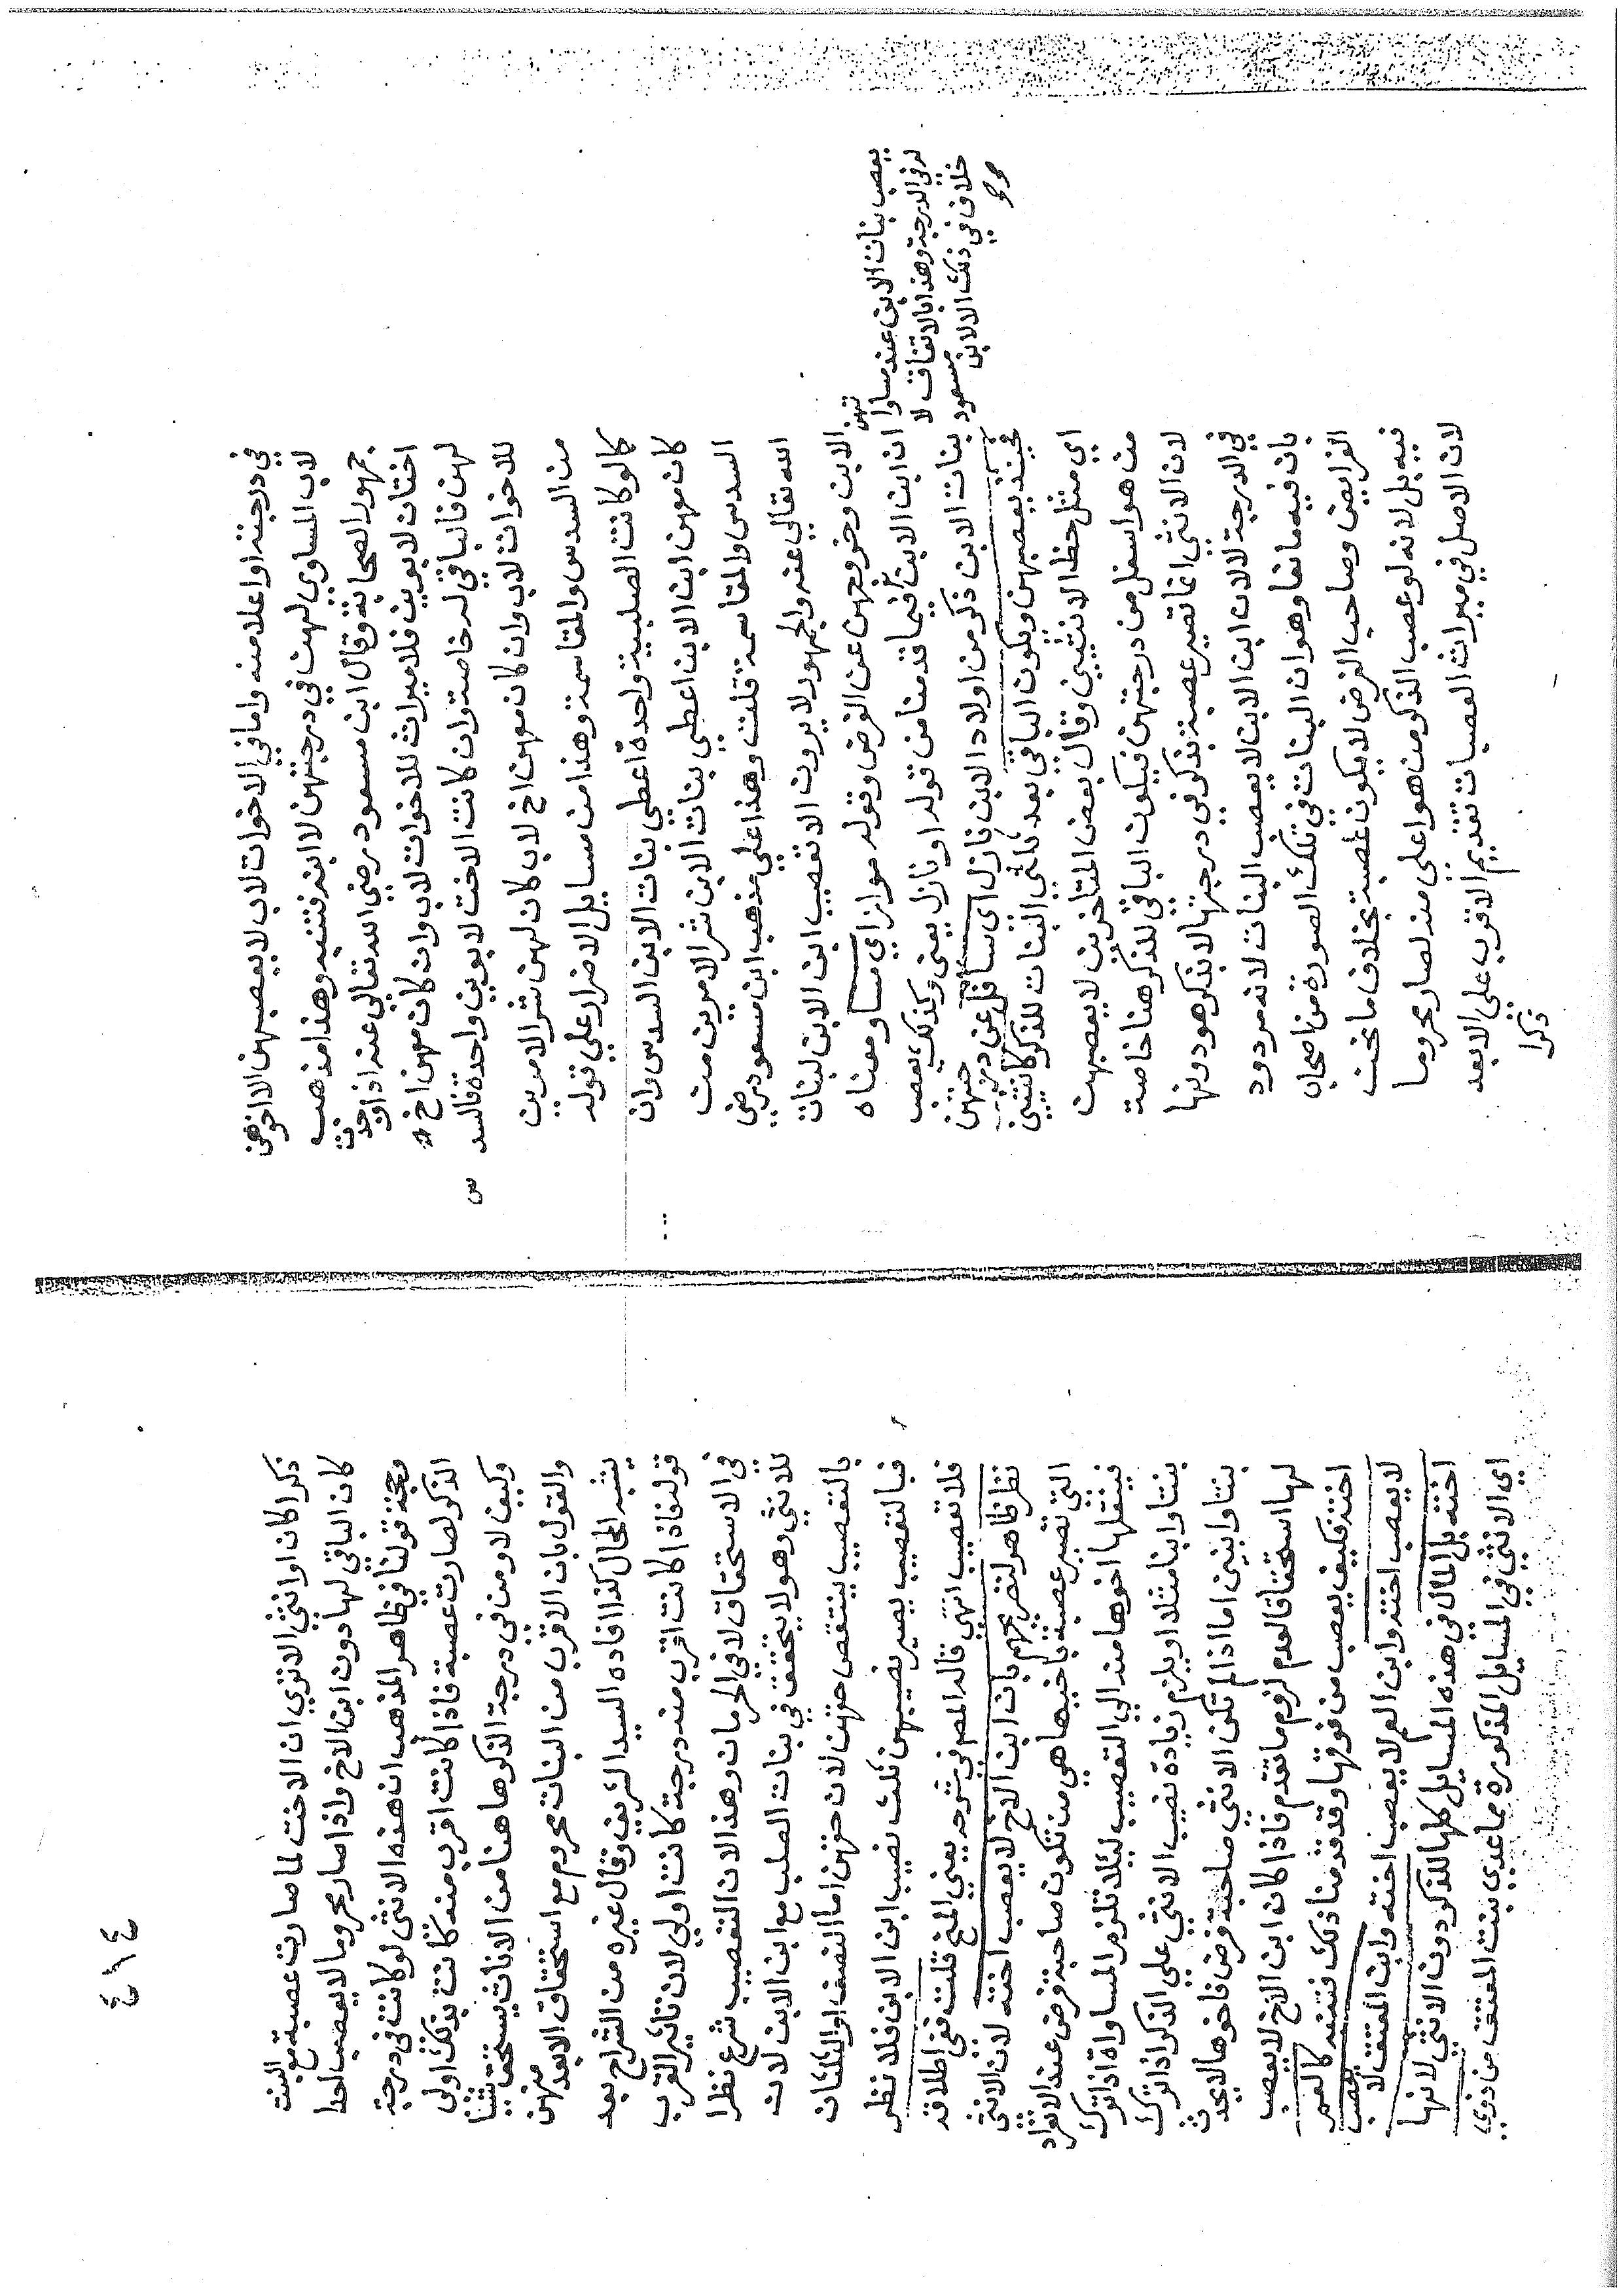 في درجته او اعلا منه واما في الاخوات لاب لا يعصبهن الا اخوهن
لاب المساوي لهن في درجتهن لا ابنه فتنبه وهذا مذهب
جمهور الصحابة وقال ابن مسعود رضي الله تعالى عنه اذا وجدت
اختان لابوين فلا ميراث للاخوات لاب وان كان معهن اخ
لهن فالباقي له خاصة وان كانت الاخت لابوين واحدة فالسدس
للاخوات لاب وان كان معهن اخ لاب كان لهن شر الامرين
من السدس والمقاسمة وهذا من مسايل الاضرار علي قوله
كما لو كانت الصلبية واحدة اعطي بنات الابن السدس وان
كان معهن ابن الابن اعطي بنات الابن شر الامرين من
السدس والمقاسمة قلت وهذا علي مذهب ابن مسعود رضي
الله تعالي عنه والجمهور لا يرون الا تعصيب ابن الابن لبنات
الابن وخروجهن عن الفرض وقوله مواز اي مساو معناه
ان ابن الابن فيما قدمنا من قوله او نازل يعني وكذلك يعصب
بنات الابن ذكر من اولاد الابن نازل اي سافل عن درجتهن
فحينئذ يعصبهن ويكون الباقي بعد ثلثي البنات للذكر كانثيين
اي مثل حظ الانثيين وقال بعض المتاخرين لا يعصبهن
من هو اسفل من درجتهن فيكون الباقي للذكر هنا خاصة
لان الانثي انما تصير عصبة بذكر في درجتها لا بذكر هو دونها
في الدرجة لان ابن الابن لا يعصب البنات لانه مردود
بان فيه مانعا وهو ان البنات في تلك الصورة من اصحاب
الفرايض وصاحب الفرض لا يكون عصبة بخلاف ما نحن
فيه بل لانه لو عصب الذكر من هو اعلي منه لصار محروما
لان الاصل في ميراث العصبات تقديم الاقرب علي الابعد
ذكرا
يعصب بنات الابن عند مساواتهن
له في الدرجة وهذا بالاتفاق لا
خلاف في ذلك الا لابن مسعود
صح
٤١٤
ذكرا كان او انثي الا تري ان الاخت لما صارت عصبة مع البنت
كان الباقي لها دون ابن الاخ واذا صار محروما لا يعصب احدا
وحجة قولنا في ظاهر المذهب ان هذه الانثي لو كانت في درجة
الذكر لصارت عصبة فاذا كانت اقرب منه كانت بذلك اولي
وكيف لا ومن في درجة الذكر هاهنا من الاناث يستحق شيئا
والقول بان الاقرب من البنات محروم مع استحقاق الابعد منهن
يشبه المحال كذا افاده السيد الشريف وقال غيره من الشراح بعد
قوله فاذا كانت اقرب منه درجة كانت اولي لان تاثير القرب
في الاستحقاق لا في الحرمان وهذا لان التعصيب شرع نظرا
للانثي وهو لا يتحقق في بنات الصلب مع ابن الابن لان
بالتعصيب ينتقص حقهن لان حقهن اما النصف او الثلثان
فبالتعصيب يصير نصيبهن ثلث نصيب ابن الابن فلا نظر
فلا تعصيب انتهي قاله المص في شرحه يعني المنح قلت ففي اطلاقه
نظر ظاهر لتصريحهم بان ابن الاخ لا يعصب اخته لان الانثي
التي تصير عصبة باخيها هي من تكون صاحبة فرض عند الانفراد
فينقلها اخوها منه الي التعصيب لئلا تلزم المساواة اذا ترك
بنتا وابنا مثلا او يلزم زيادة نصيب الانثي علي الذكر اذا ترك
بنتا وابنين اما اذا لم تكن الانثي صاحبة فرض فاخوها لا يحدث
لها استحقاقا لعدم لزوم ما تقدم فاذا كان ابن الاخ لا يعصب
اخته فكيف يعصب من فوقها وقد قدمنا ذلك فتنبه كالعم
لا يعصب اخته وابن العم لا يعصب اخته وابن المعتق لا يعصب
اخته بل المال في هذه المسايل كلها للذكر دون الانثي لانها
اي الانثي في المسايل المذكورة مما عدي بنت المعتق من ذوي